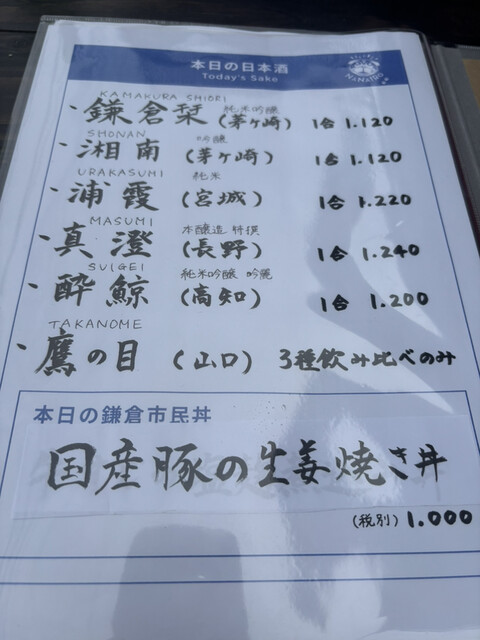 本日の日本酒
Today's Sake
KAMAKURA SHIORI 純米吟醸
・鎌倉栞 (茅ヶ崎) 1合 1.120
SHONAN 吟醸
・湘南 (茅ヶ崎) 1合 1.120
URAKASUMI 純米
・浦霞 (宮城) 1合 1.220
MASUMI 本醸造 特撰
・真澄 (長野) 1合 1.240
SUIGEI 純米吟醸 吟麗
・酔鯨 (高知) 1合 1.200
TAKANOME
・鷹の目 (山口) 3種飲み比べのみ
本日の鎌倉市民丼
国産豚の生姜焼き丼
(税別) 1.000